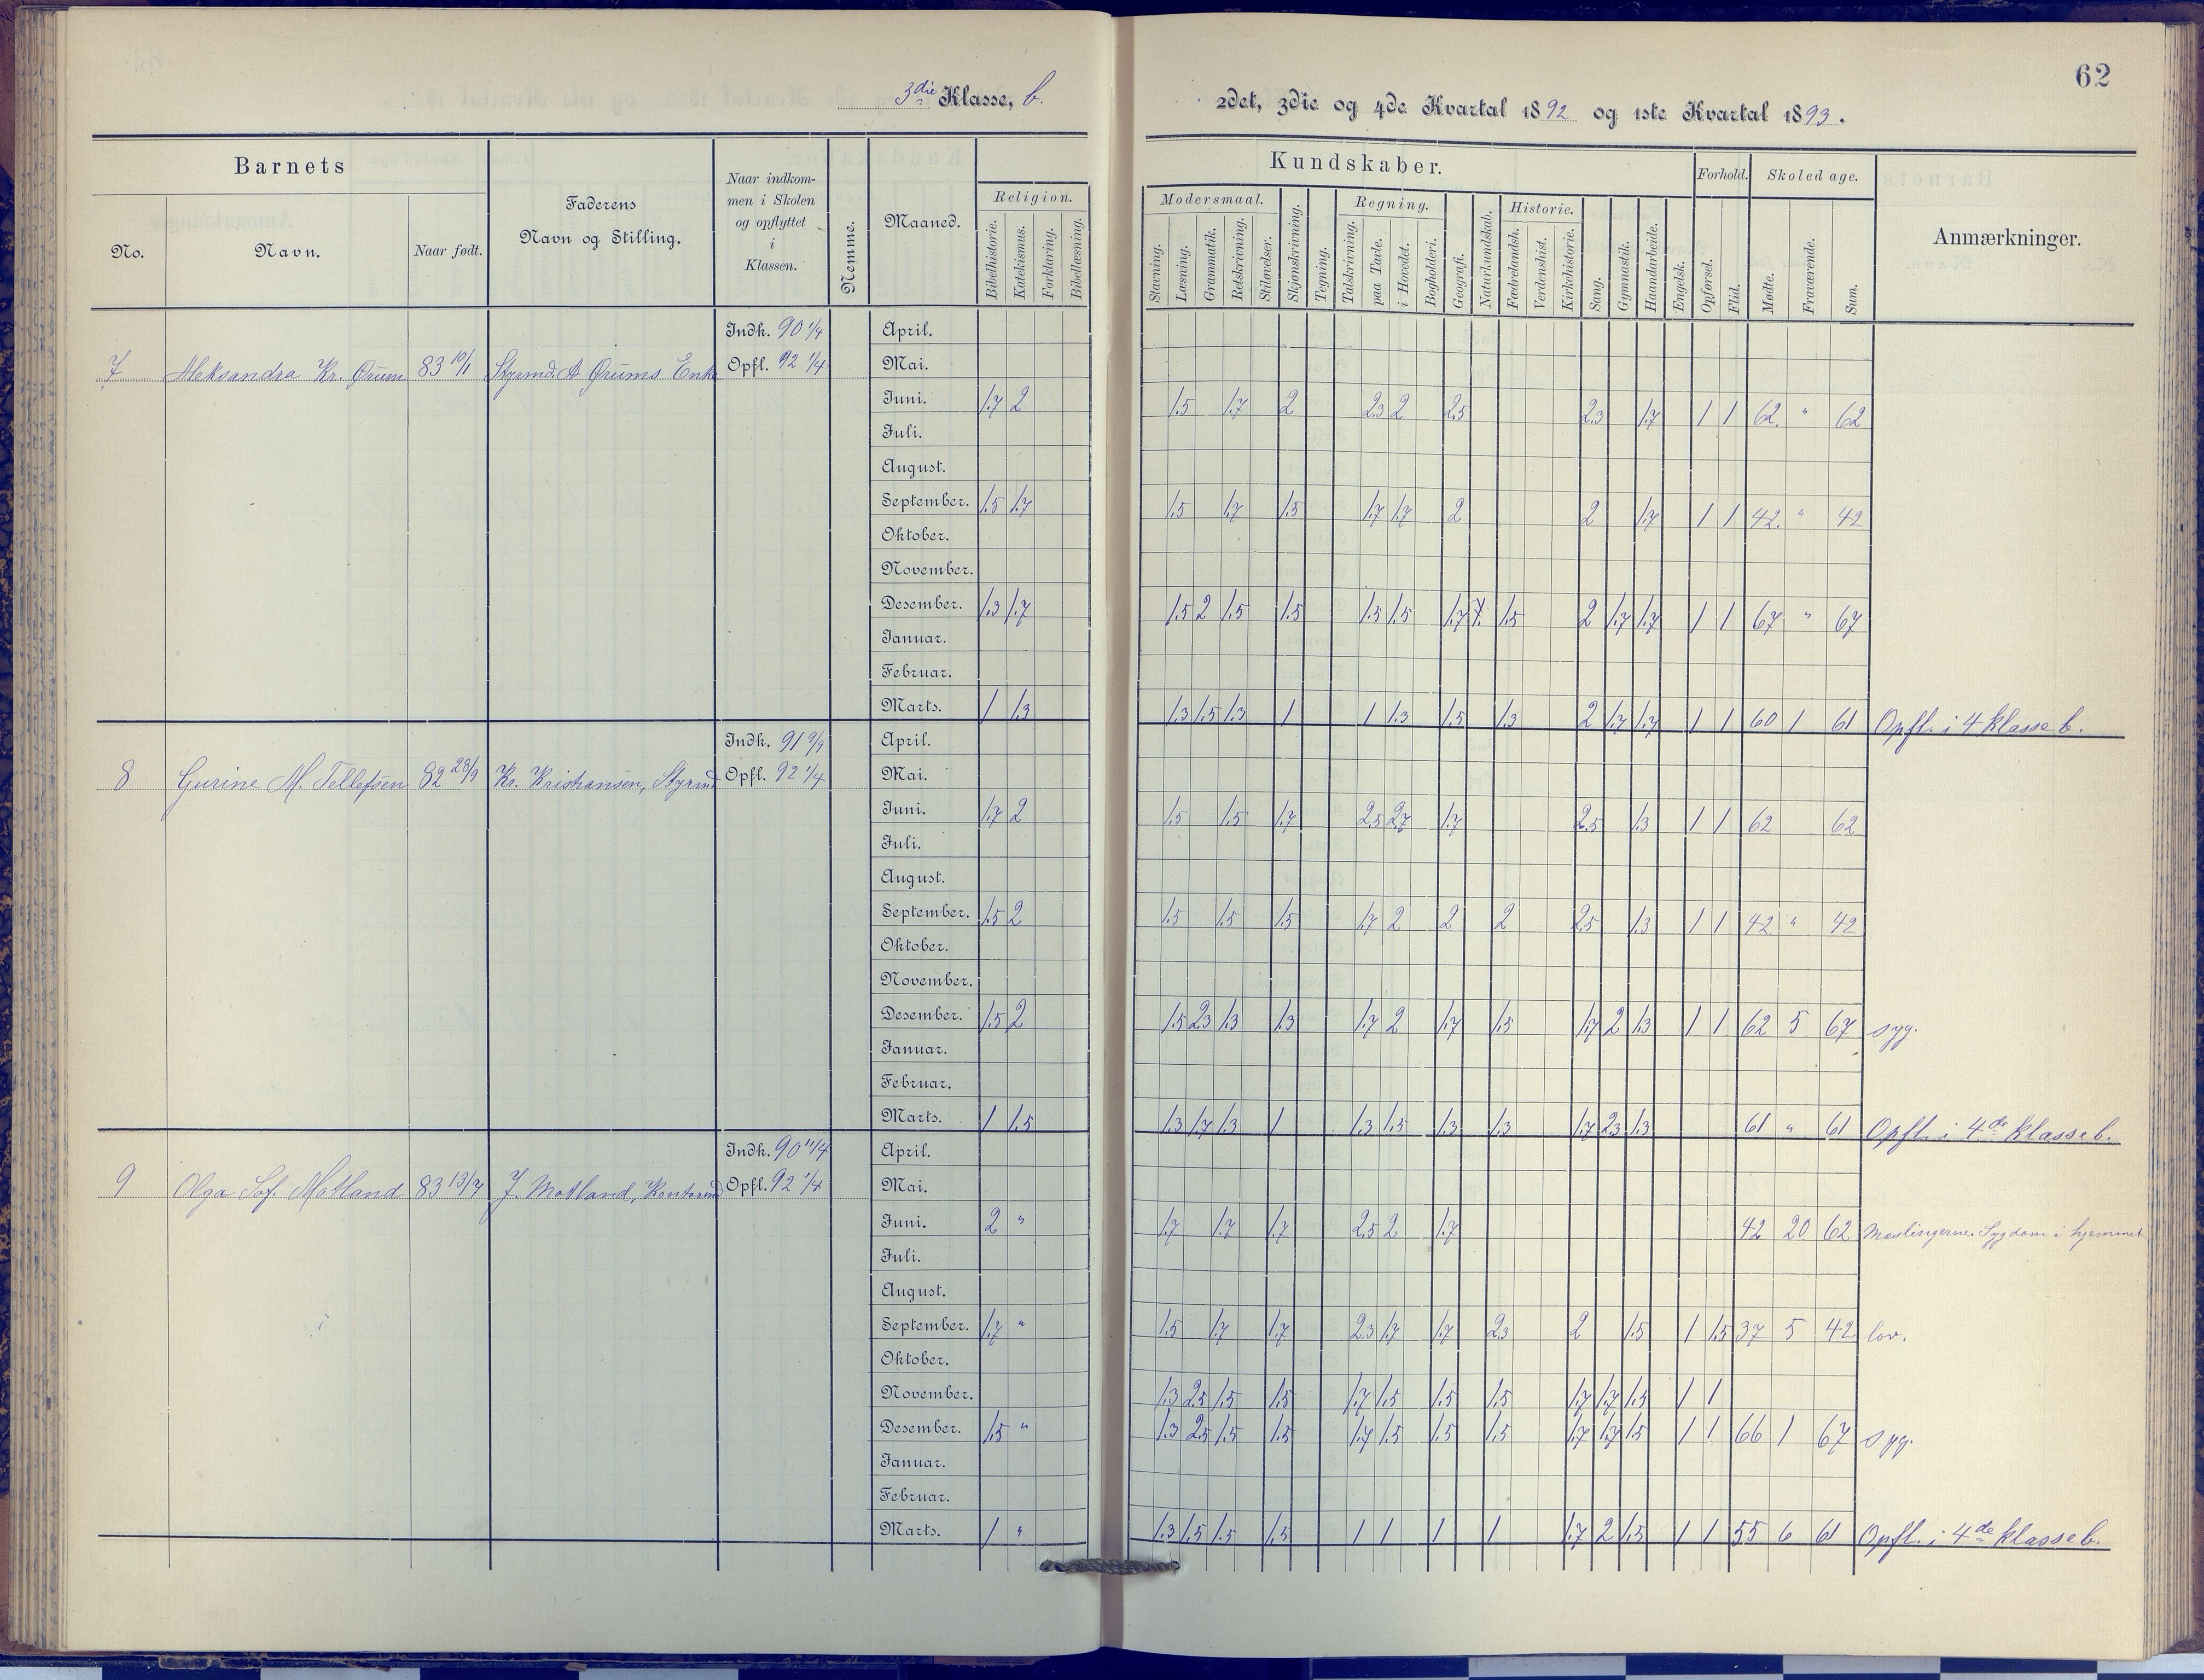 62
3die Klasse, b.
2det, 3die og 4de Kvartal 1892 og 1ste Kvartal 1893.
Barnets
No.
Navn.
Naar født.
Faderens
Navn og Stilling.
Naar indkom-
men i Skolen
og opflyttet
i
Klassen.
Nemme.
Maaned.
Kundskaber.
Religion.
Bibelhistorie.
Katekismus.
Forklaring.
Bibellæsning.
Modersmaal.
Stavning.
Læsning.
Grammatik.
Retskrivning.
Stiløvelser.
Skjønskrivning.
Tegning.
Regning.
Talskrivning.
paa Tavle.
i Hovedet.
Bogholderi.
Geografi.
Naturkundskab.
Historie.
Fædrelandsh.
Verdenshist.
Kirkehistorie.
Sang.
Gymnastik.
Haandarbeide.
Engelsk.
Forhold.
Opførsel.
Flid.
Skoledage.
Mødte.
Fraværende.
Sum.
Anmærkninger.
7 Aleksandra Kr. Ørum 83 10/1 Styrmd. A Ørums Enke
Indk. 90 1/4
Opfl. 92 1/4
April.
Mai.
Juni. 1.7 2 1.5 1.7 2 2.3 2 2.5 2.3 1.7 1 1 62. " 62
Juli.
August.
September. 1.5 1.7 1.5 1.7 1.5 1.7 1.7 2 2 1.7 1 1 42. " 42
Oktober.
November.
Desember. 1.3 1.7 1.5 2 1.5 1.5 1.5 1.5 1.7 1.5 2 1.7 1.7 1 1 67 " 67
Januar.
Februar.
Marts. 1 1.3 1.3 1.5 1.3 1 1 1.3 1.5 1.3 2 1.7 1.7 1 1 60 1 61 Opfl. i 4 klasse b.
8 Gurine M. Tellefsen 82 28/9 Kr. Kristiansen, Styrmd
Indk. 91 9/9
Opfl. 92 1/4
April.
Mai.
Juni. 1.7 2 1.5 1.5 1.7 2.5 2.7 1.7 2.5 1.3 1 1 62 62
Juli.
August.
September. 1.5 2 1.5 1.5 1.5 1.7 2 2 2 2.5 1.3 1 1 42 " 42
Oktober.
November.
Desember. 1.5 2 1.5 2.3 1.3 1.3 1.7 2 1.7 1.5 1.7 2 1.3 1 1 62 5 67 syg.
Januar.
Februar.
Marts. 1 1.5 1.3 1.7 1.3 1 1.3 1.5 1.3 1.3 1.7 2.3 1.3 61 " 61 Opfl. i 4de klasse b.
9 Olga Sof. Motland 83 13/7 J. Motland, Kontormd
Indk. 90 11/4
Opfl. 92 1/4
April.
Mai.
Juni. 2 " 1.7 1.7 1.7 2.5 2 1.7 42 20 62 Meslingerne. Sygdom i hjemmet
Juli.
August.
September. 1.7 " 1.5 1.7 1.7 2.3 1.7 1.7 2.3 2 1.5 1 1.5 37 5 42 lov.
Oktober.
November. 1.3 2.5 1.5 1.5 1.7 1.5 1.5 1.5 1.7 1.7 1.5 1 1
Desember. 1.5 " 1.3 2.5 1.5 1.5 1.7 1.5 1.5 1.5 1.7 1.7 1.5 1 1 66 1 67 syg.
Januar.
Februar.
Marts. 1 " 1.3 1.5 1.5 1.5 1 1 1 1 1.7 2 1.5 1 1 55 6 61 Opfl. i 4de klasse b.